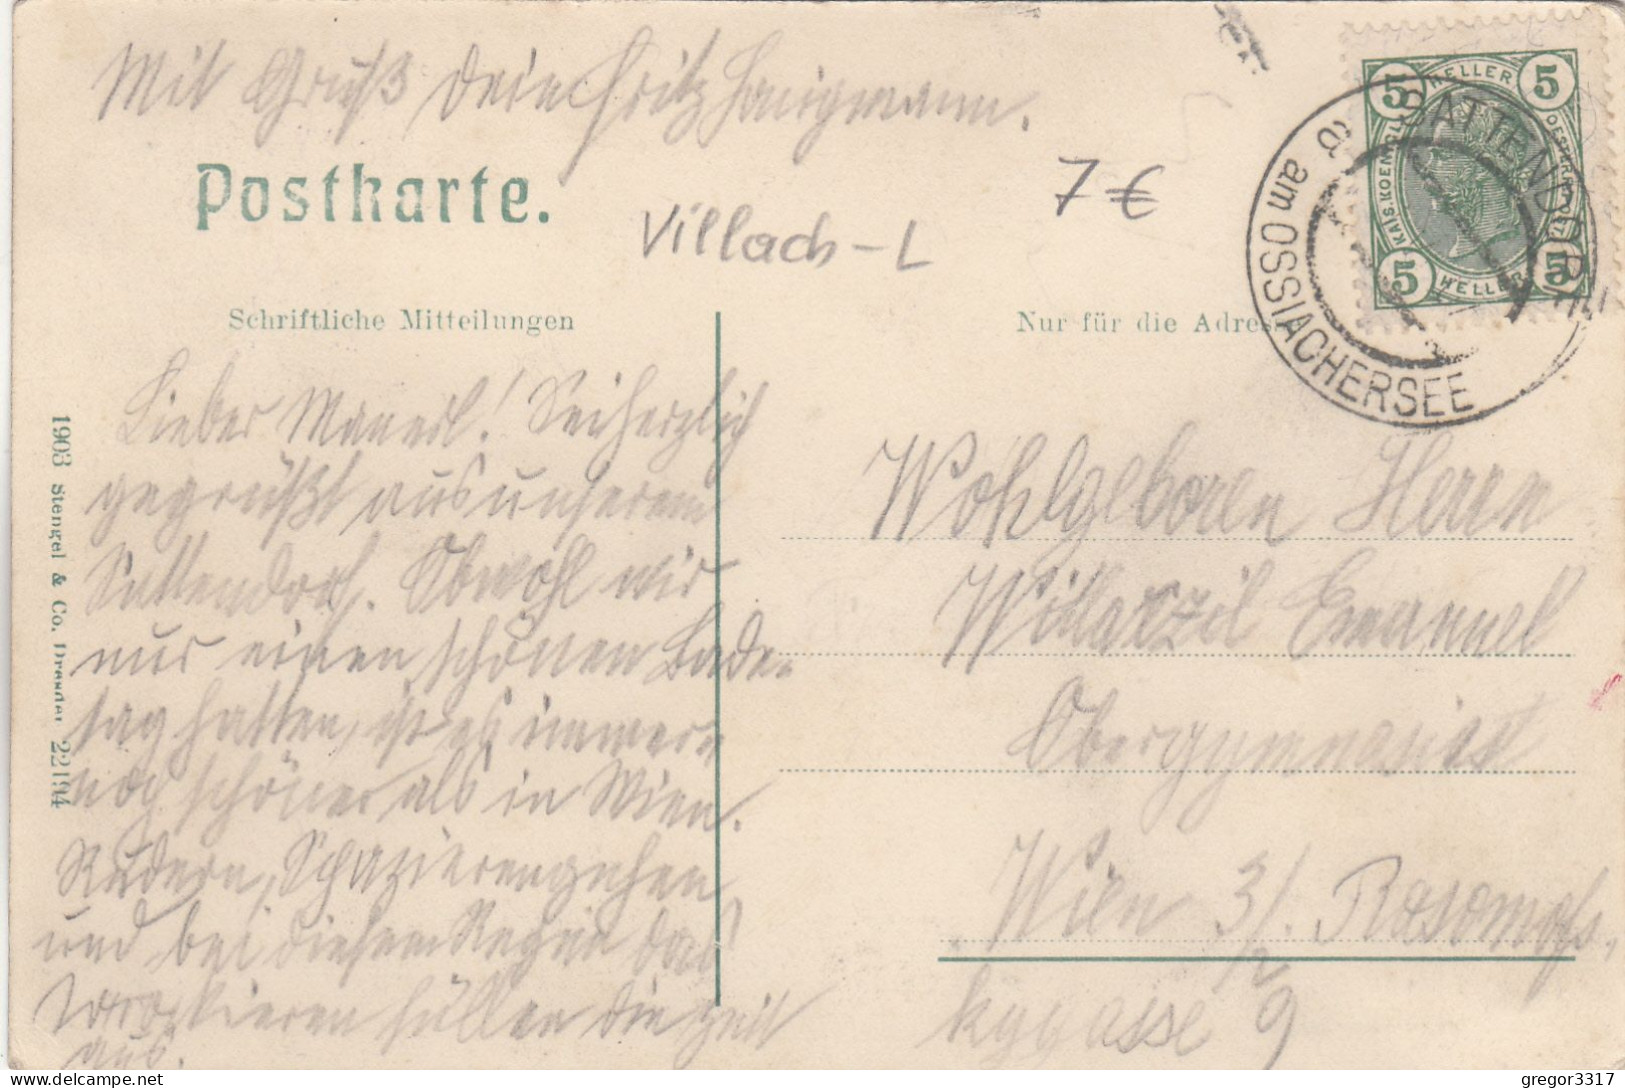 Mit Gruß Dein Fritz Honigmann.
Postkarte.
7 €
Villach-L
5 HELLER 5
KAIS. KOENIGL. OESTERR. POST
5 HELLER 5
SATTENDORF
am OSSIACHERSEE
a
Schriftliche Mitteilungen
Nur für die Adresse
Lieber Manerl! Sei herzlich
gegrüßt aus unserem
Sattendorf. Obwohl wir
nur einen schönen Bade-
tag hatten, ist es immer
noch schöner als in Wien.
Rudern, Spazierengehen
und bei diesem Regen das
füllen die Zeit
aus.
Wohlgeboren Herrn
Emanuel
Obergymnasiast
Wien 3/2
gasse 9
1903 Stengel & Co., Dresden 22194
gregor3317